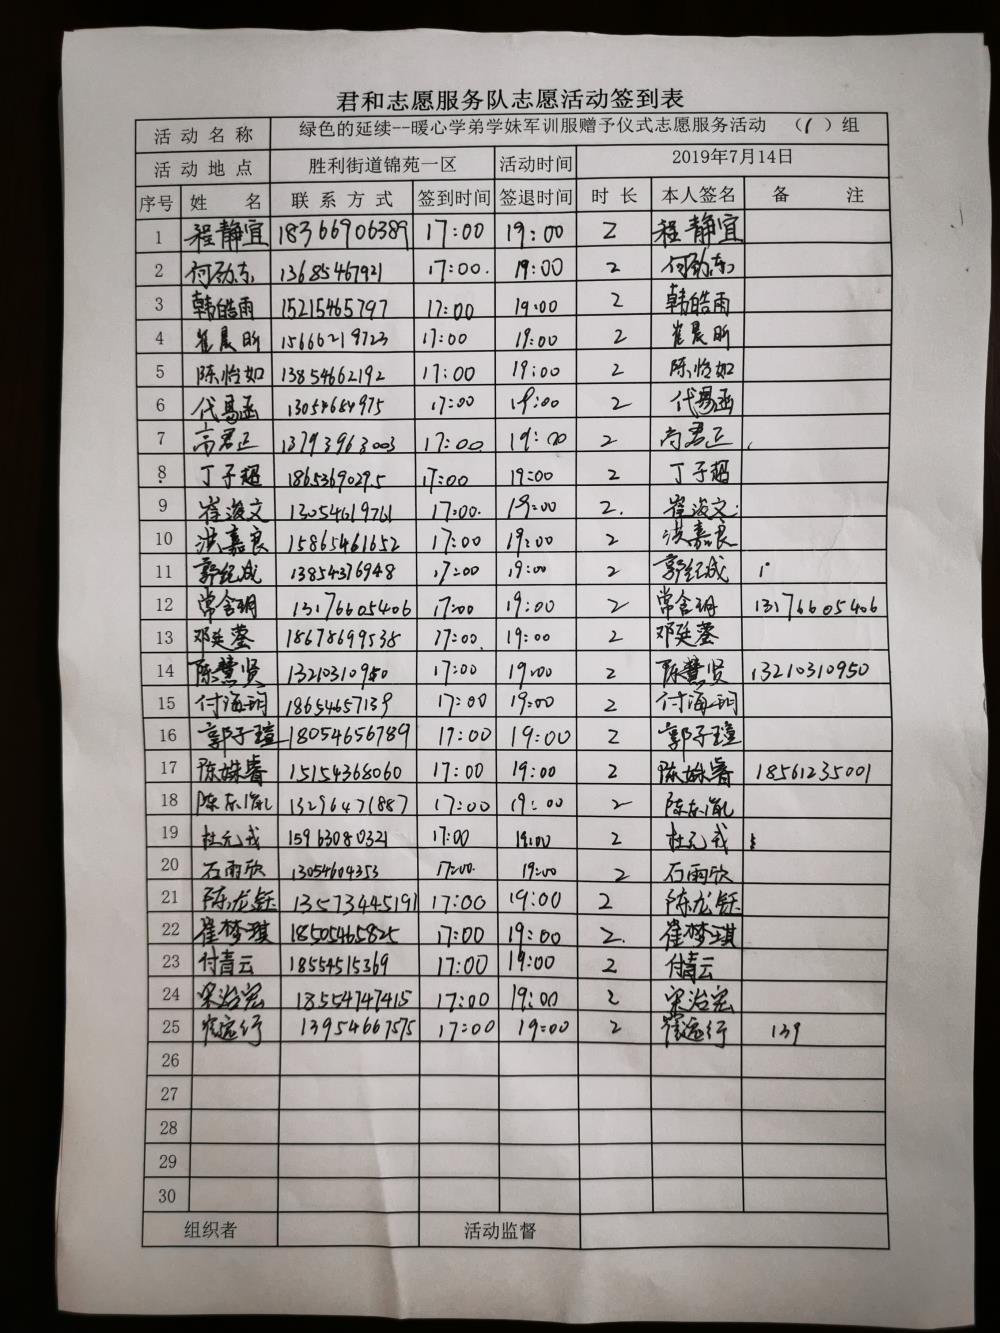 君和志愿服务队志愿活动签到表
活动名称 绿色的延续--暖心学弟学妹军训服赠予仪式志愿服务活动 （1）组
活动地点 胜利街道锦苑一区 活动时间 2019年7月14日
序号 姓 名 联系方式 签到时间 签退时间 时长 本人签名 备 注
1 程静宜 18366906389 17:00 19:00 2 程静宜
2 何劲东 13685467921 17:00. 19:00 2 何劲东
3 韩皓雨 15215465797 17:00 19:00 2 韩皓雨
4 崔晨昕 15666219723 17:00 19:00 2 崔晨昕
5 陈怡如 13854662192 17:00 19:00 2 陈怡如
6 代易函 13054684975 17:00 19:00 2 代易函
7 高君正 13793963003 17:00 19:00 2 高君正
8 丁子超 18653690295 17:00 19:00 2 丁子超
9 崔浚文 13054619761 17:00. 19:00 2. 崔浚文
10 洪嘉良 15865461652 17:00 19:00 2 洪嘉良
11 郭纪成 13854376948 17:00 19:00 2 郭纪成
12 常含玥 13176605406 17:00 19:00 2 常含玥 13176605406
13 邓廷蓥 18678699538 17:00 19:00 2 邓廷蓥
14 陈慧贤 13210310950 17:00 19:00 2 陈慧贤 13210310950
15 付海玥 18654657139 17:00 19:00 2 付海玥
16 郭子瑄 18054656789 17:00 19:00 2 郭子瑄
17 陈姝睿 15154368060 17:00 19:00 2 陈姝睿 18561235001
18 陈东胤 13296471887 17:00 19:00 2 陈东胤
19 杜元戎 15963080321 17:00 19:00 2 杜元戎
20 石雨欣 13054604353 17:00 19:00 2 石雨欣
21 陈龙钰 13573445191 17:00 19:00 2 陈龙钰
22 崔梦琪 18505465825 17:00 19:00 2. 崔梦琪
23 付青云 18554515369 17:00 19:00 2 付青云
24 宋治宏 18554747415 17:00 19:00 2 宋治宏
25 13954667575 17:00 19:00 2 139
26
27
28
29
30
组织者 活动监督